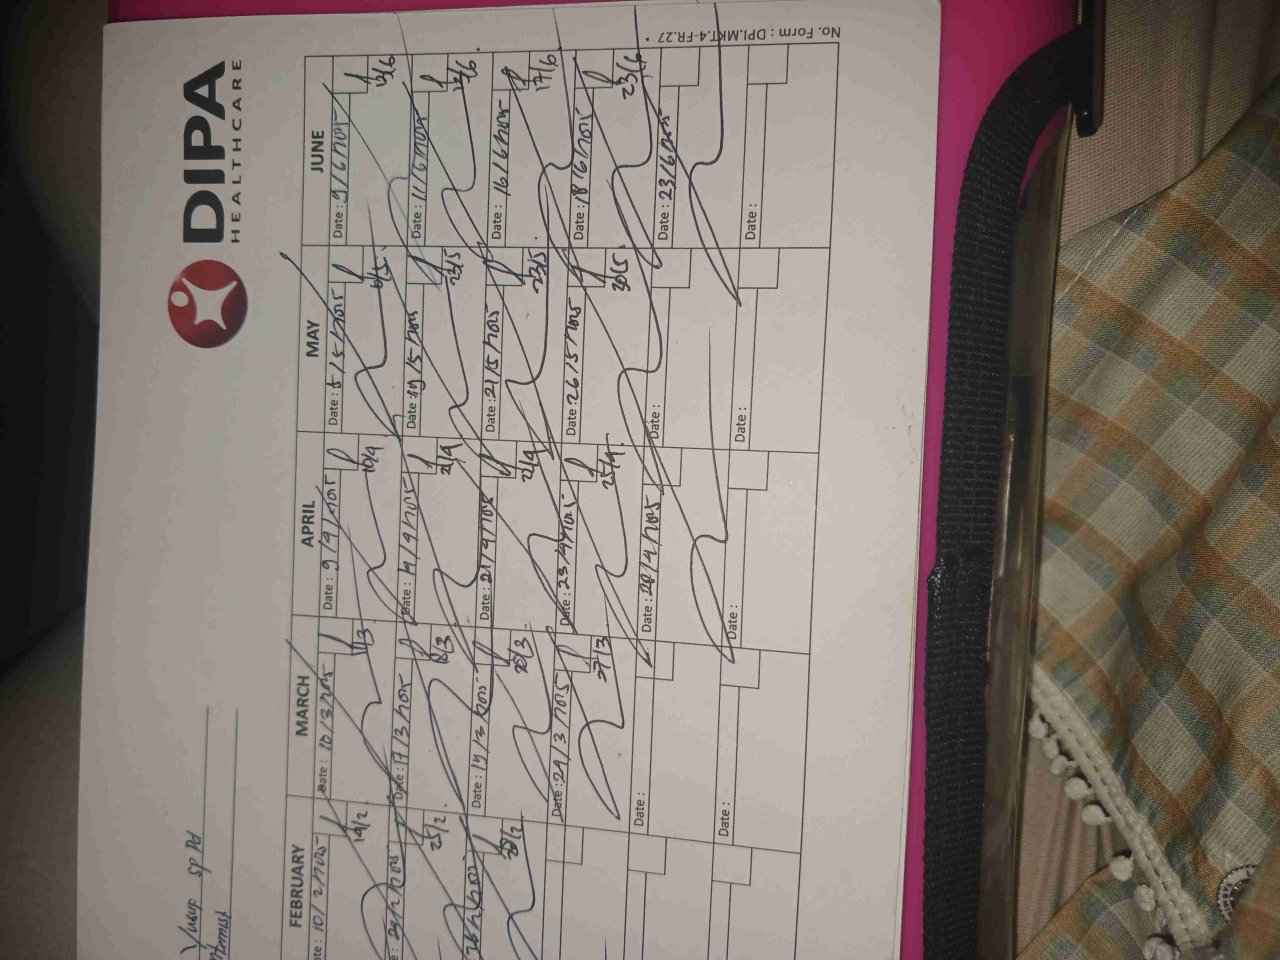 DIPA
HEALTHCARE
Yusup Sp Pd
FEBRUARY
MARCH
APRIL
MAY
JUNE
10/2/2025
14/2
Date : 10/3/2025
11/3
Date : 9/4/2025
10/4
Date : 5/5/2025
6/5
Date : 9/6/2025
25/2
Date : 17/3/2025
18/3
Date : 14/4/2025
21/4
Date : 19/5/2025
23/5
Date : 11/6/2025
28/2
Date : 19/3/2025
20/3
Date : 21/4/2025
22/4
Date : 21/5/2025
23/5
Date : 16/6/2025
17/6
Date : 24/3/2025
27/3
Date : 23/4/2025
25/4
Date : 26/5/2025
30/5
Date : 18/6/2025
23/6
Date :
Date : 28/4/2025
Date :
Date : 23/6/2025
Date :
Date :
Date :
Date :
No. Form : DPI.MKT.4-FR.27